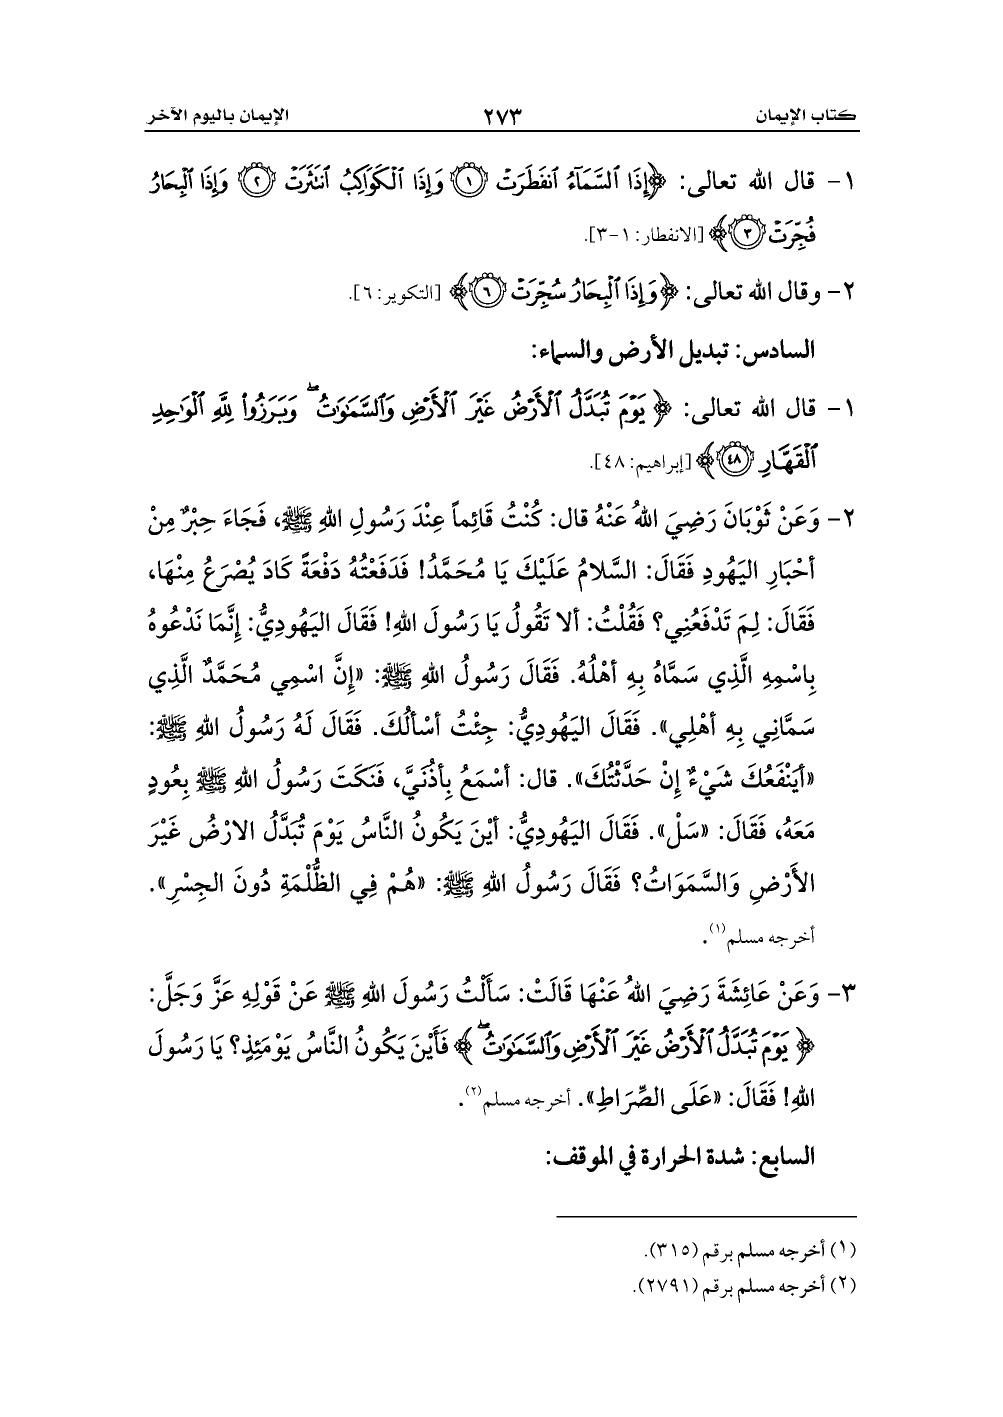 كتاب الإيمان ٢٧٣ الإيمان باليوم الآخر
١- قال الله تعالى: ﴿إِذَا ٱلسَّمَآءُ ٱنفَطَرَتۡ ۝١ وَإِذَا ٱلۡكَوَاكِبُ ٱنتَثَرَتۡ ۝٢ وَإِذَا ٱلۡبِحَارُ
فُجِّرَتۡ ۝٣﴾ [الانفطار: ١-٣].
٢- وقال الله تعالى: ﴿وَإِذَا ٱلۡبِحَارُ سُجِّرَتۡ ۝٦﴾ [التكوير: ٦].
السادس: تبديل الأرض والسماء:
١- قال الله تعالى: ﴿يَوۡمَ تُبَدَّلُ ٱلۡأَرۡضُ غَيۡرَ ٱلۡأَرۡضِ وَٱلسَّمَٰوَٰتُۖ وَبَرَزُواْ لِلَّهِ ٱلۡوَٰحِدِ
ٱلۡقَهَّارِ ۝٤٨﴾ [إبراهيم: ٤٨].
٢- وَعَنْ ثَوْبَانَ رَضِيَ اللهُ عَنْهُ قال: كُنْتُ قَائِماً عِنْدَ رَسُولِ اللهِ ﷺ، فَجَاءَ حِبْرٌ مِنْ
أحْبَارِ اليَهُودِ فَقَالَ: السَّلامُ عَلَيْكَ يَا مُحَمَّدُ! فَدَفَعْتُهُ دَفْعَةً كَادَ يُصْرَعُ مِنْهَا،
فَقَالَ: لِمَ تَدْفَعُنِي؟ فَقُلْتُ: ألا تَقُولُ يَا رَسُولَ اللهِ! فَقَالَ اليَهُودِيُّ: إنَّمَا نَدْعُوهُ
بِاسْمِهِ الَّذِي سَمَّاهُ بِهِ أهْلُهُ. فَقَالَ رَسُولُ اللهِ ﷺ: «إنَّ اسْمِي مُحَمَّدٌ الَّذِي
سَمَّانِي بِهِ أهْلِي». فَقَالَ اليَهُودِيُّ: جِئْتُ أسْألُكَ. فَقَالَ لَهُ رَسُولُ اللهِ ﷺ:
«أيَنْفَعُكَ شَيْءٌ إنْ حَدَّثْتُكَ». قال: أسْمَعُ بِأذُنَيَّ، فَنَكَتَ رَسُولُ اللهِ ﷺ بِعُودٍ
مَعَهُ، فَقَالَ: «سَلْ». فَقَالَ اليَهُودِيُّ: أيْنَ يَكُونُ النَّاسُ يَوْمَ تُبَدَّلُ الارْضُ غَيْرَ
الأَرْضِ وَالسَّمَوَاتُ؟ فَقَالَ رَسُولُ اللهِ ﷺ: «هُمْ فِي الظُّلْمَةِ دُونَ الجِسْرِ».
أخرجه مسلم(١).
٣- وَعَنْ عَائِشَةَ رَضِيَ اللهُ عَنْهَا قَالَتْ: سَألْتُ رَسُولَ اللهِ ﷺ عَنْ قَوْلِهِ عَزَّ وَجَلَّ:
﴿يَوۡمَ تُبَدَّلُ ٱلۡأَرۡضُ غَيۡرَ ٱلۡأَرۡضِ وَٱلسَّمَٰوَٰتُۖ﴾ فَأَيْنَ يَكُونُ النَّاسُ يَوْمَئِذٍ؟ يَا رَسُولَ
اللهِ! فَقَالَ: «عَلَى الصِّرَاطِ». أخرجه مسلم(٢).
السابع: شدة الحرارة في الموقف:
(١) أخرجه مسلم برقم (٣١٥).
(٢) أخرجه مسلم برقم (٢٧٩١).